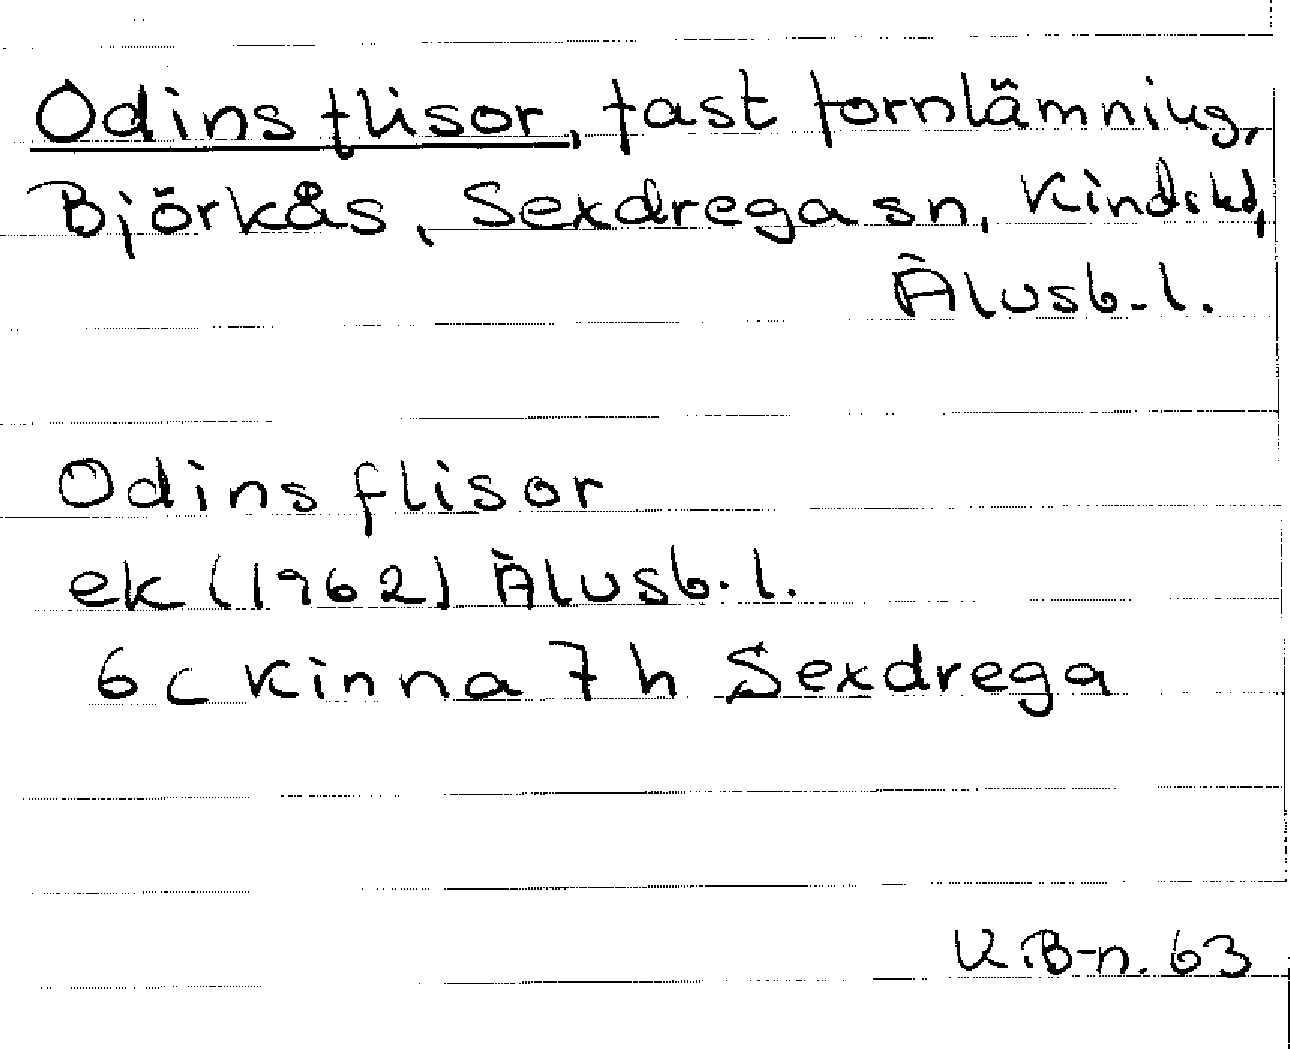 Odins flisor, fast fornlämning,
Björkås, Sexdrega sn, Kinds hd,
Älvsb. l.
Odins flisor
ek (1962) Älvsb. l.
6c Kinna 7h Sexdrega
K.B-n. 63